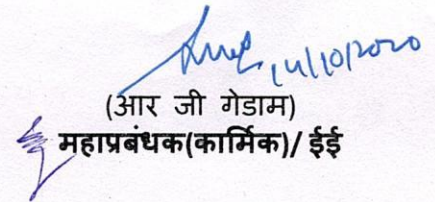 14/10/2020
(आर जी गेडाम)
महाप्रबंधक(कार्मिक)/ ईई